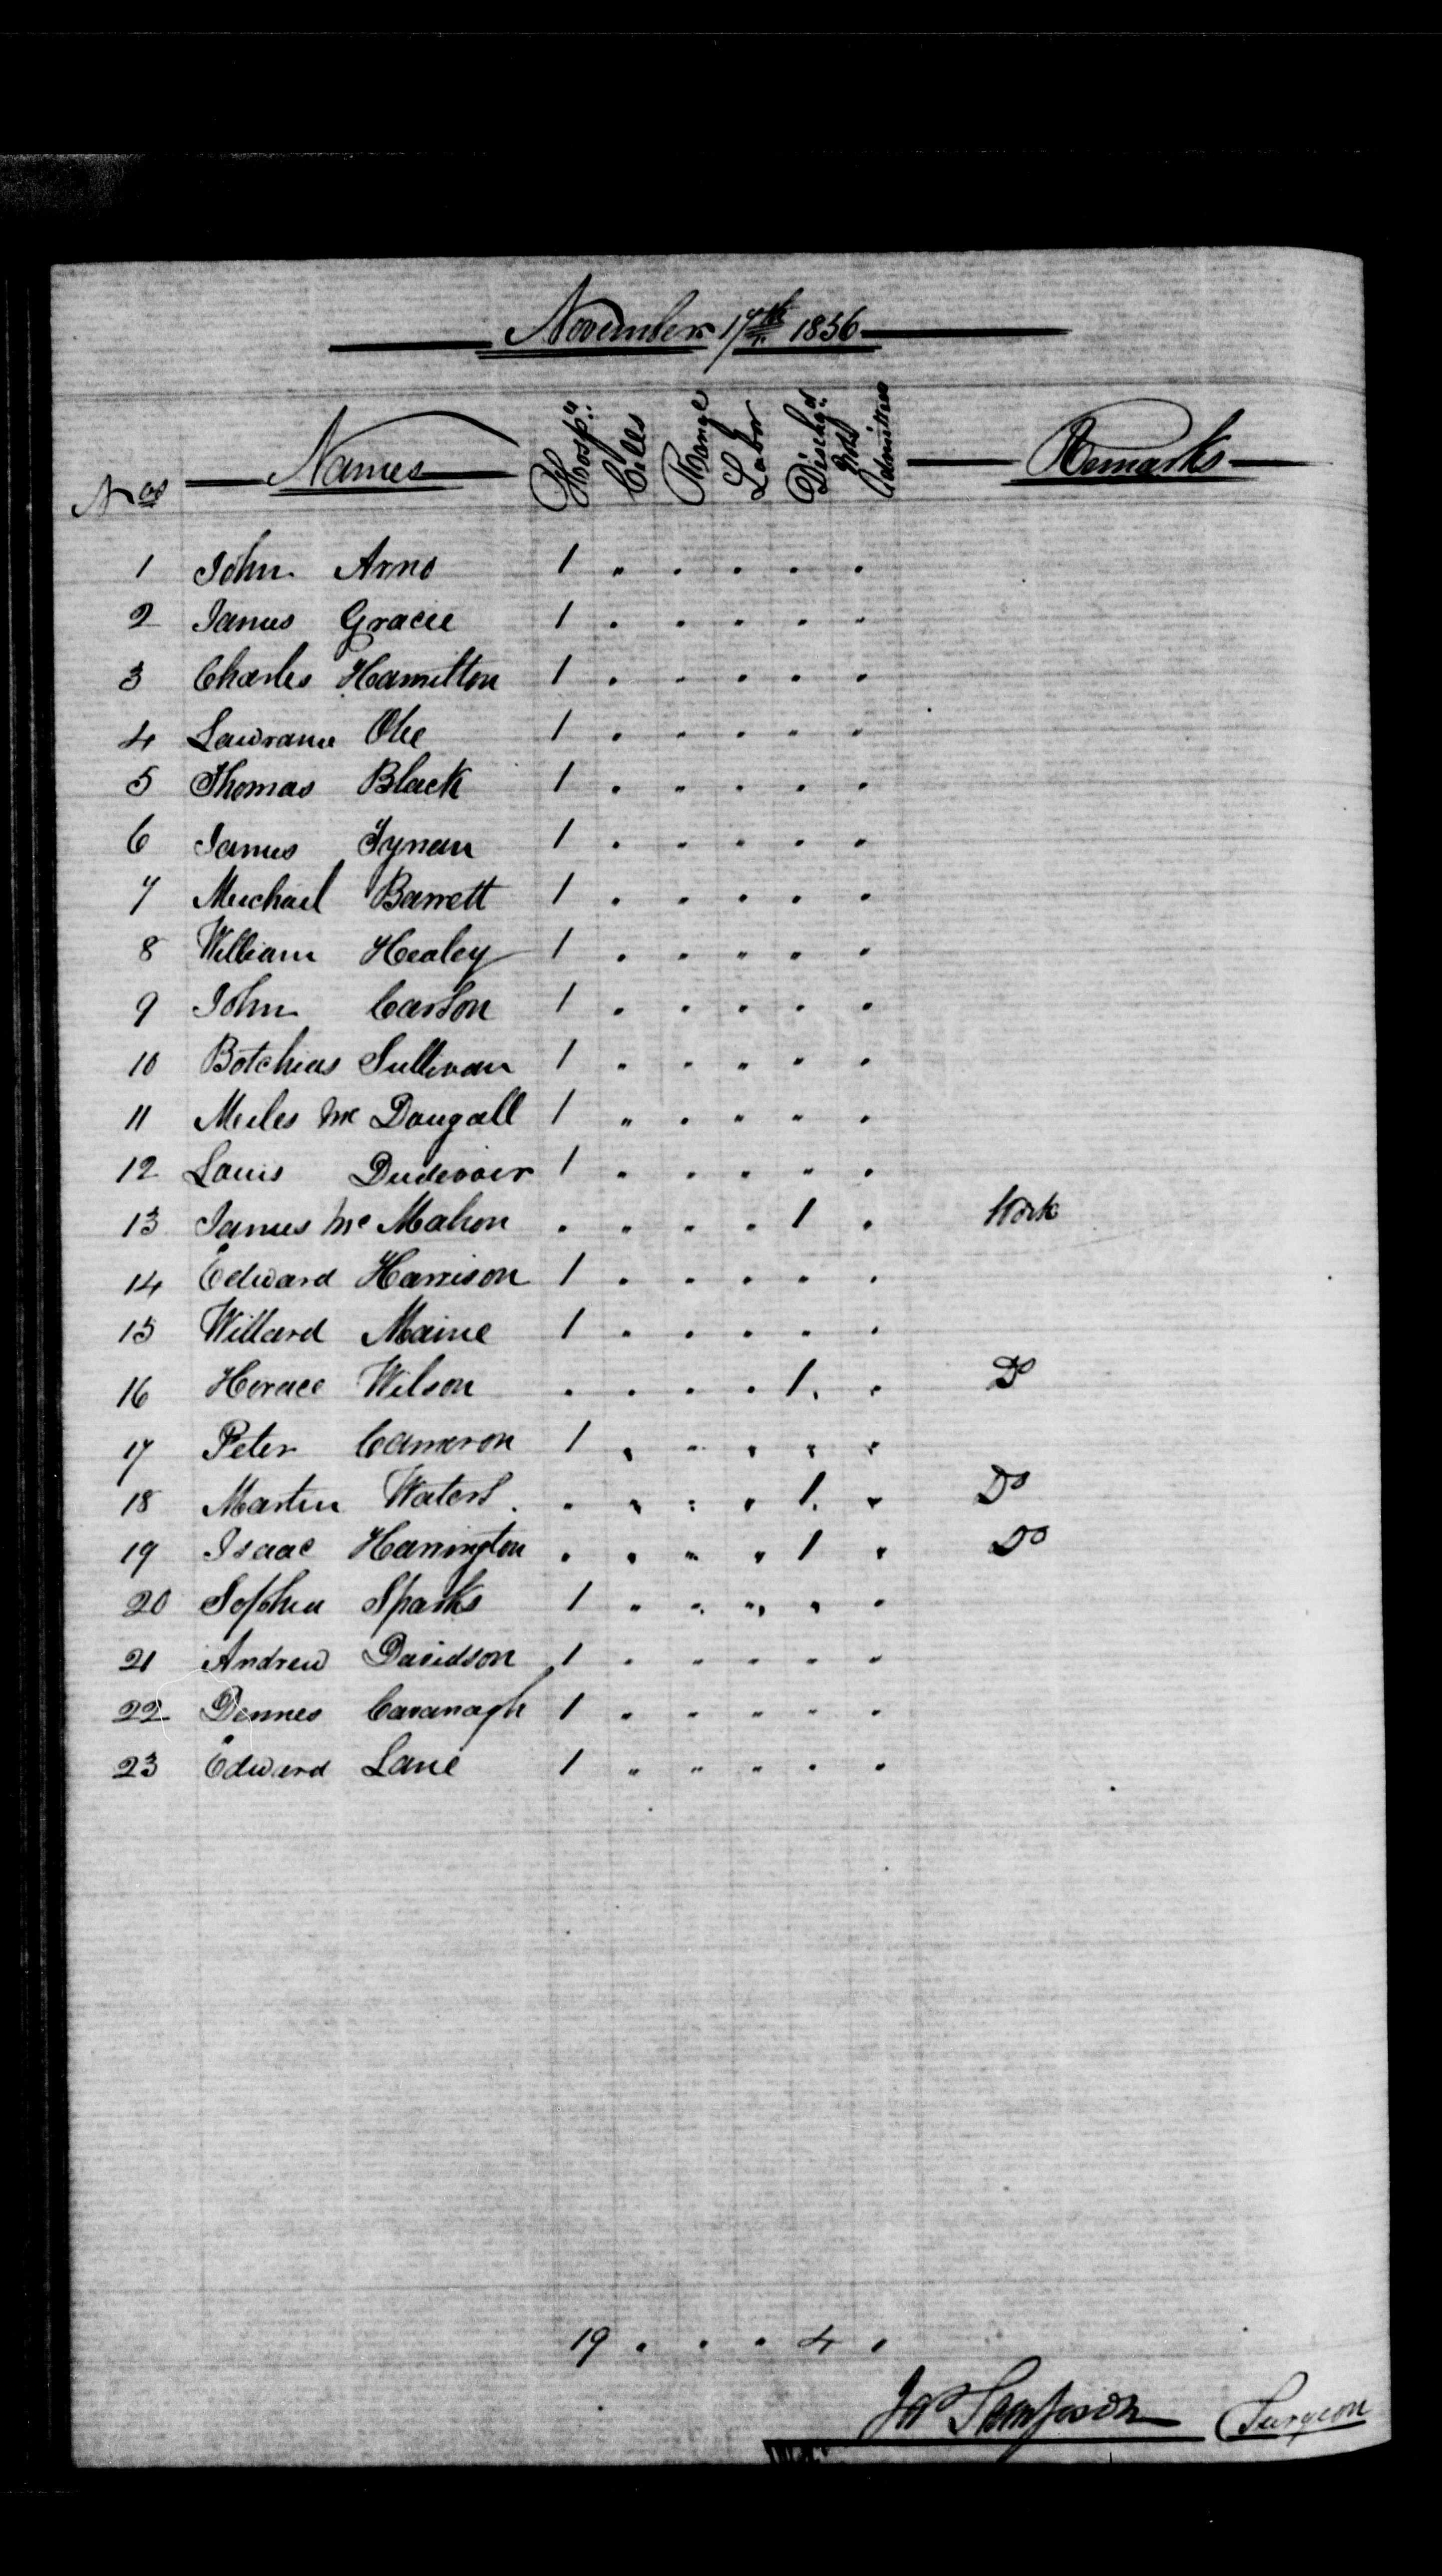 November 17th 1856
Nos Names Hospl. Cells Range Labor Dischgd Not Admitted Remarks
1 John Arno 1 " . . . .
2 James Gracie 1 . . . . .
3 Charles Hamilton 1 . . . . .
4 Lawrance 1 . . . . .
5 Thomas Black 1 . . . . .
6 James Tynan 1 . . . . .
7 Michael Barrett 1 . . . . .
8 William Healey 1 . . . . .
9 John Carson 1 . . . . .
10 Botchias Sullivan 1 . . . . .
11 Miles Mc Dougall 1 " . " " .
12 Louis Dudevoir 1 . . . . .
13 James Mc Mahon . . . . 1 . Work
14 Edward Harrison 1 . . . . .
15 Willard Maine 1 . . . . .
16 Horace Wilson . . . . 1 . Do
17 Peter Cameron 1 . . . . .
18 Martin Waters . . . . 1 . Do
19 Isaac Harrington . . . . 1 . Do
20 Sophia Sparks 1 . . . . .
21 Andrew Davidson 1 . . . . .
22 Dennes Cavanagh 1 . . . . .
23 Edward Lane 1 " " " . .
19 . . . 4 .
Jas Sampson Surgeon